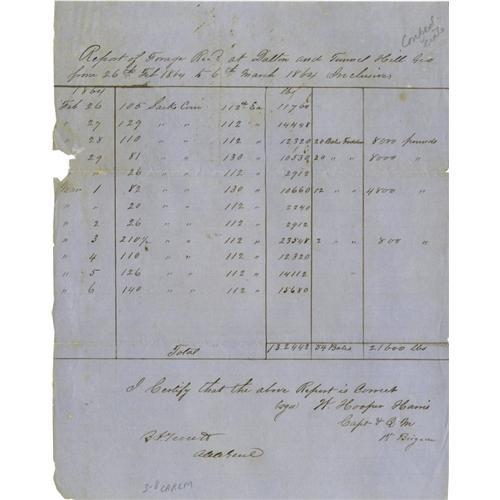 Confed-
erate
Report of Forage Rec'd at Dalton and Tunnel Hill Geo
from 26th Feb 1864 to 6th March 1864 Inclusive
1864 lbs
Feb 26 105 Sacks Corn 112 lb Ea 11760
" 27 129 " " 112 " 14448
" 28 110 " " 112 " 12320 20 Bales Fodder 8000 pounds
" 29 81 " " 130 " 10530 20 " " 8000 "
" " 26 " " 112 " 2912
Mar 1 82 " " 130 " 10660 12 " " 4800 "
" " 20 " " 112 " 2240
" 2 26 " " 112 " 2912
" 3 210 1/4 " " 112 " 23548 2 " " 800 "
" 4 110 " " 112 " 12320
" 5 126 " " 112 " 14112
" 6 140 " " 112 " 15680
Total 132442 54 Bales 21600 lbs
I Certify that the above Report is Correct
W. Hooper Harris
Capt & Q M